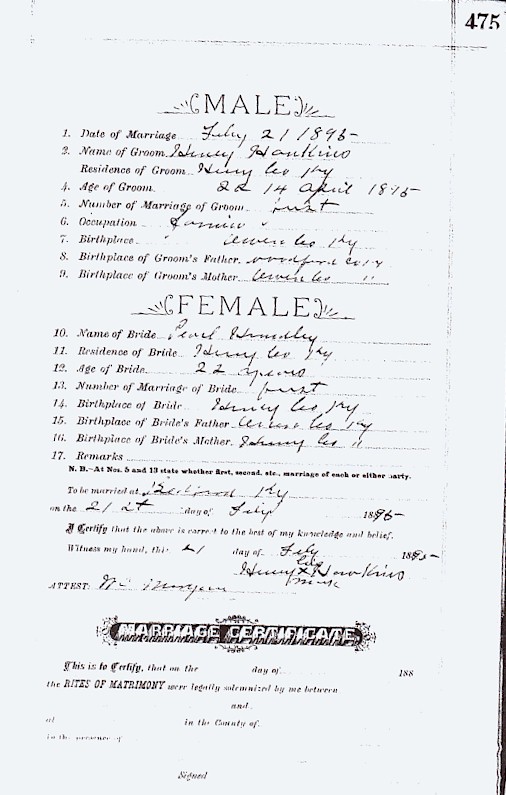 475
MALE
1. Date of Marriage Feby 21 1895
2. Name of Groom Henry Hawkins
Residence of Groom Henry Co Ky
4. Age of Groom 22 14 April 1895
5. Number of Marriage of Groom first
6. Occupation
7. Birthplace Owen Co Ky
8. Birthplace of Groom's Father Woodford Co Ky
9. Birthplace of Groom's Mother Owen Co "
FEMALE
10. Name of Bride Pearl Hundley
11. Residence of Bride Henry Co Ky
12. Age of Bride 22 years
13. Number of Marriage of Bride first
14. Birthplace of Bride Henry Co Ky
15. Birthplace of Bride's Father Owen Co Ky
16. Birthplace of Bride's Mother Henry Co "
17. Remarks
N. B.—At Nos. 5 and 13 state whether first, second, etc., marriage of each or either party.
To be married at Ky
on the 21st day of Feby 1895
I Certify that the above is correct to the best of my knowledge and belief.
Witness my hand, this 21 day of Feby 1895
his
Henry X Hawkins
mark
ATTEST: Morgan
MARRIAGE CERTIFICATE
This is to Certify, that on the day of 188
the RITES OF MATRIMONY were legally solemnized by me between
and
at in the County of
in the presence of
Signed